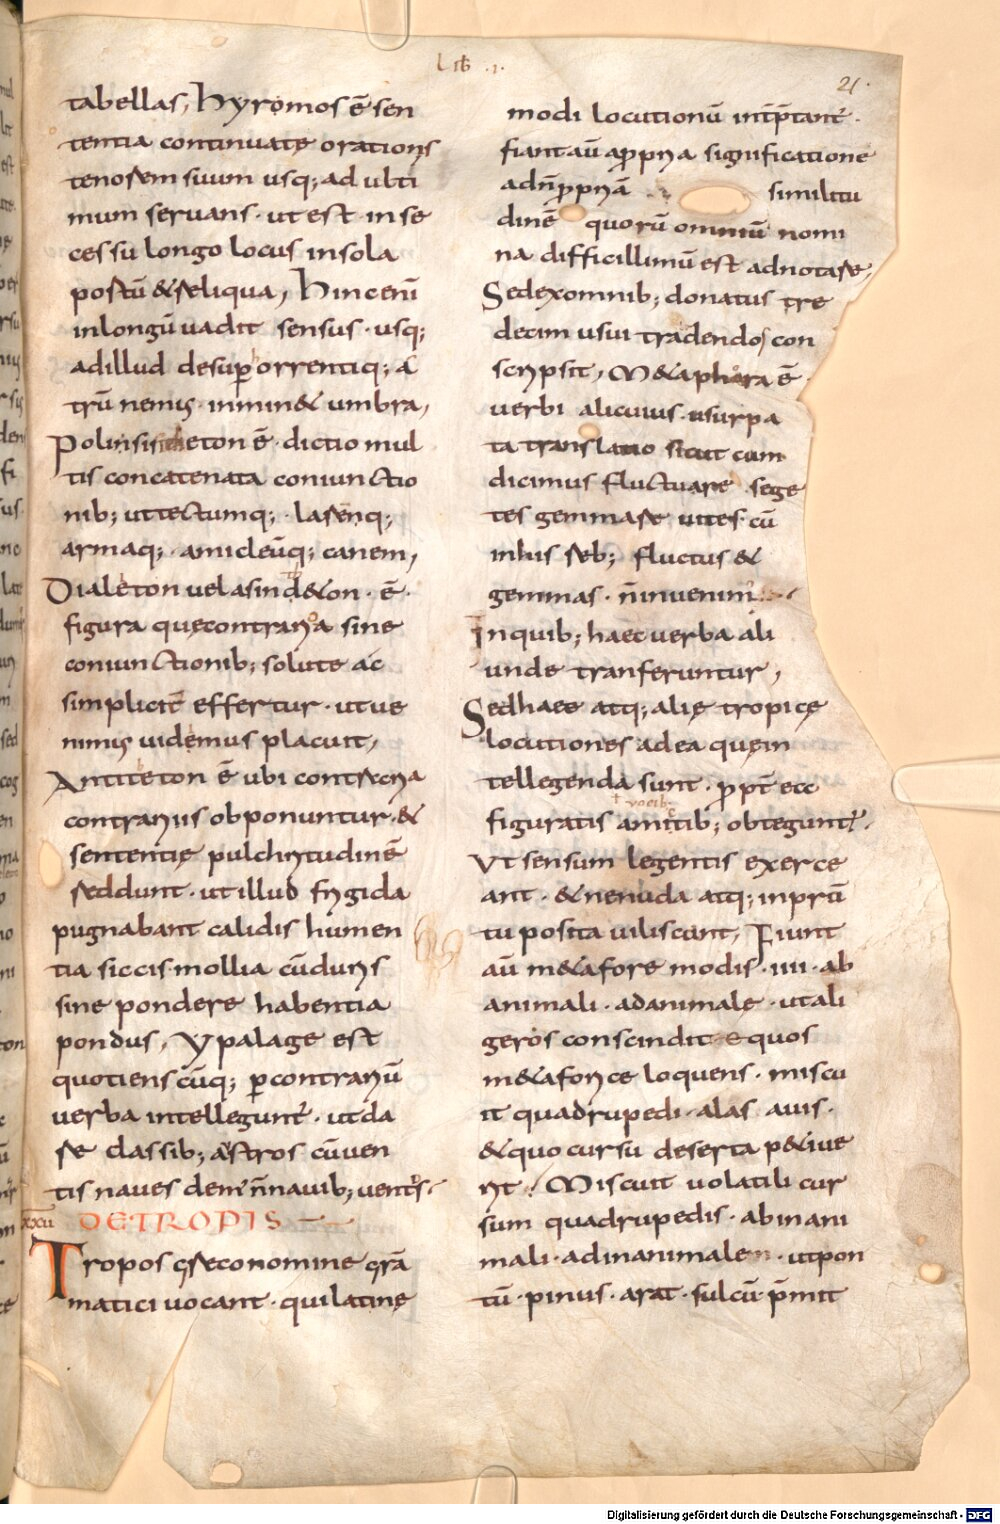 Lib .i.
21.
tabellas, hyromos ē sen
tentia continuatę orationis
tenorem suum usq; ad ulti
mum servans · ut est · in se
cessu longo locus insola
postū & reliqua, hinc enī
inlongū uadit sensus · usq;
adillud desup horrentiq; a
trū nemus · inmin& umbra,
Polinsisndeton ē · dictio mul
tis concatenata coniunctio
nib; ut tectumq; · larēnq;
armaq; · amicleūq; canem,
Dialeton uel asind&on · ē ·
figura quę contraria sine
coniunctionib; solute ac
simplicit̄ effertur · ut ue
nimus uidemus placuit,
Antiteton ē ubi contracria
contrariis obponuntur · &
sententię pulchritudinē
reddunt · ut illud frigida
pugnabant calidis humen
tia siccis · mollia cū duris
sine pondere habentia
pondus, Ypalage est
quotienscūq; p contrariū
uerba intellegunt̄ · ut da
re classib; austros cū uen
tis naues dem̄ n̄ nauib; uentos
xxxvii DE TROPIS
Tropos greco nomine grā
matici uocant · qui latinę
modi locutionū int̄p̄tant̄ ·
fiant aū a ppria significatione
ad n̄ ppriā similitu
dinē quorū omniū nomi
na difficillimū est adnotare,
Sed ex omnib; donatus tre
decim usui tradendos con
scripsit, M&aphora ē
uerbi alicuius usurpa
ta translatio sicut cum
dicimus fluctuare sege
tes gemmare uites · cū
in his reb; fluctus &
gemmas · n̄ inuenim̄
In quib; haec uerba ali
unde tranferuntur,
Sed haee atq; alię tropicę
locutiones ad ea quę in
tellegenda sunt · ppt̄ ecc
vocib;
figuratis amitib; obtegunt̄ ·
Vt sensum legentis exerce
ant · & ne nuda atq; inprū
tu posita uiliscant, Fiunt
aū m&afore modis · iiii · ab
animali · ad animale · ut ali
geros conscindit equos
m&aforice loquens · miscu
it quadrupedi · alas auis ·
& quo cursu deserta p&iue
rit, Miscuit uolatili cur
sum quadrupedis · ab inani
mali · ad inanimalem · ut pon
tū · pinus · arat · sulcū · p̄mit
Digitalisierung gefördert durch die Deutsche Forschungsgemeinschaft - DFG